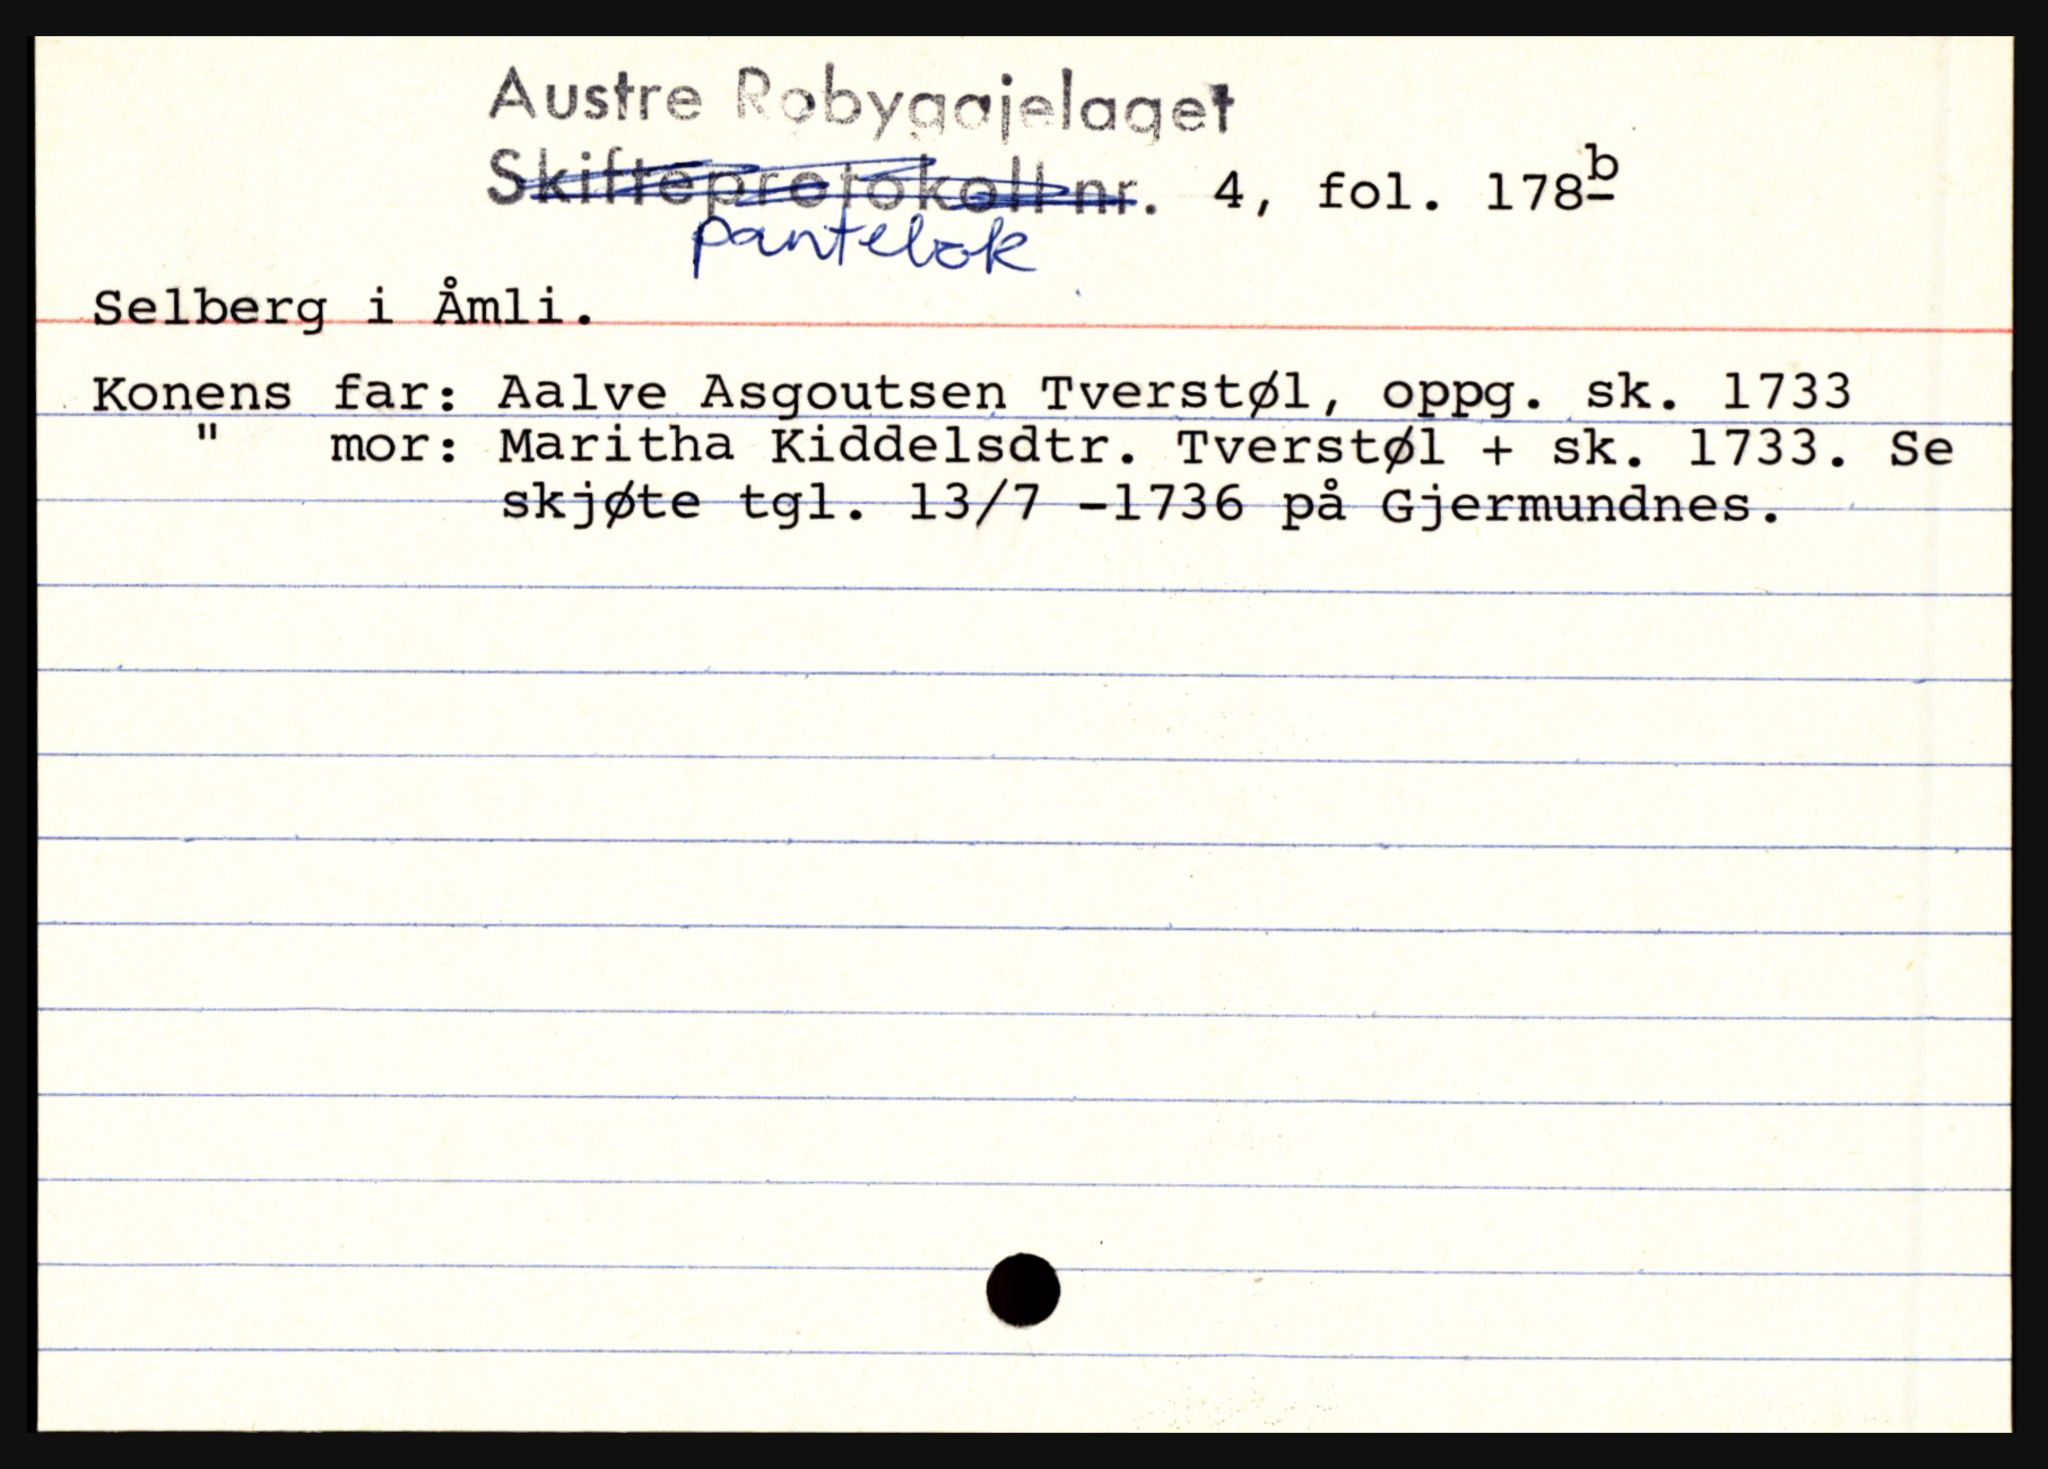 Austre Robygdjelaget
Skifteprotokoll nr. 4, fol. 178b
pantebok
Selberg i Åmli.
Konens far: Aalve Asgoutsen Tverstøl, oppg. sk. 1733
" mor: Maritha Kiddelsdtr. Tverstøl + sk. 1733. Se
skjøte tgl. 13/7 -1736 på Gjermundnes.